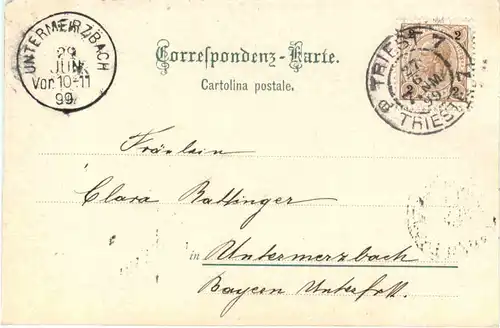 UNTERMERZBACH
29
JUN
Vor.10-11
99
Correspondenz-Karte.
Cartolina postale.
TRIEST 7
27
6
99
TRIEST
2 2
2 2
Fräulein
Clara Rattinger
in Untermerzbach
Bayern Unterfr.